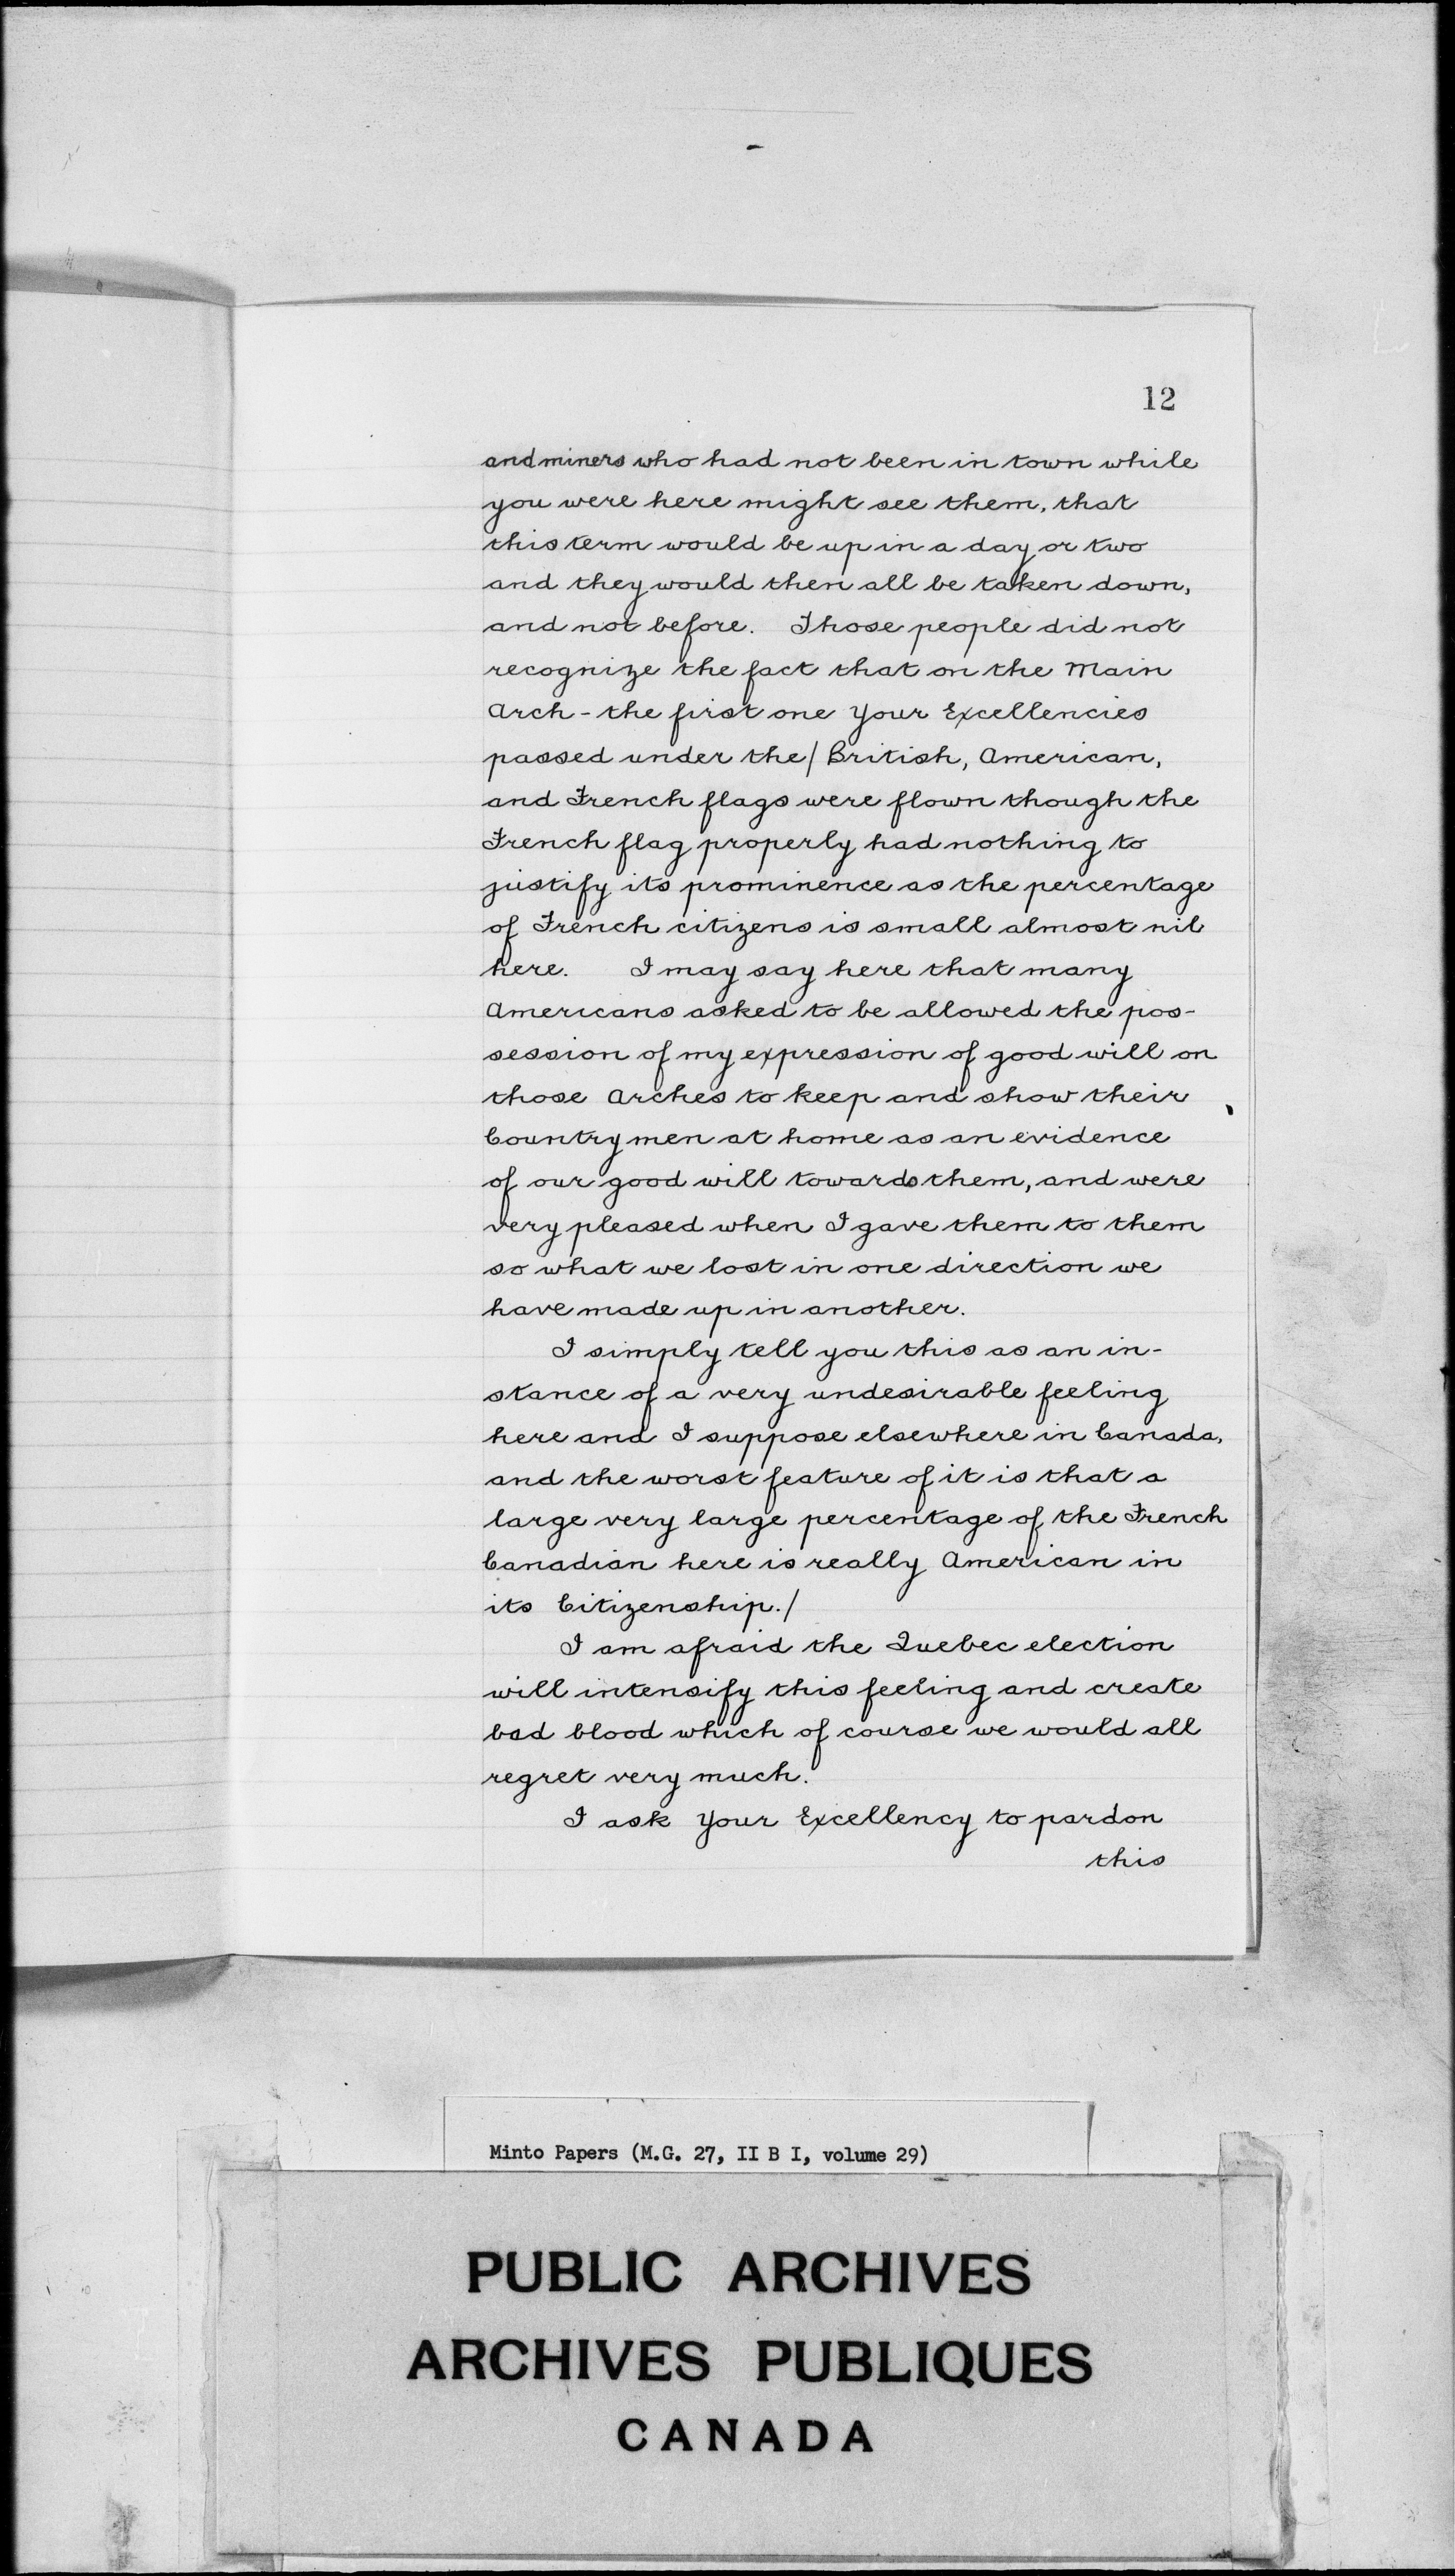 12
and miners who had not been in town while
you were here might see them, that
this term would be up in a day or two
and they would then all be taken down,
and not before. Those people did not
recognize the fact that on the Main
Arch - the first one Your Excellencies
passed under the/ British, American,
and French flags were flown though the
French flag properly had nothing to
justify its prominence as the percentage
of French citizens is small almost nil
here. I may say here that many
Americans asked to be allowed the pos-
session of my expression of good will on
those Arches to keep and show their
Countrymen at home as an evidence
of our good will towards them, and were
very pleased when I gave them to them
so what we lost in one direction we
have made up in another.
I simply tell you this as an in-
stance of a very undesirable feeling
here and I suppose elsewhere in Canada,
and the worst feature of it is that a
large very large percentage of the French
Canadian here is really American in
its Citizenship./
I am afraid the Quebec election
will intensify this feeling and create
bad blood which of course we would all
regret very much.
I ask Your Excellency to pardon
this
Minto Papers (M.G. 27, II B I, volume 29)
PUBLIC ARCHIVES
ARCHIVES PUBLIQUES
CANADA